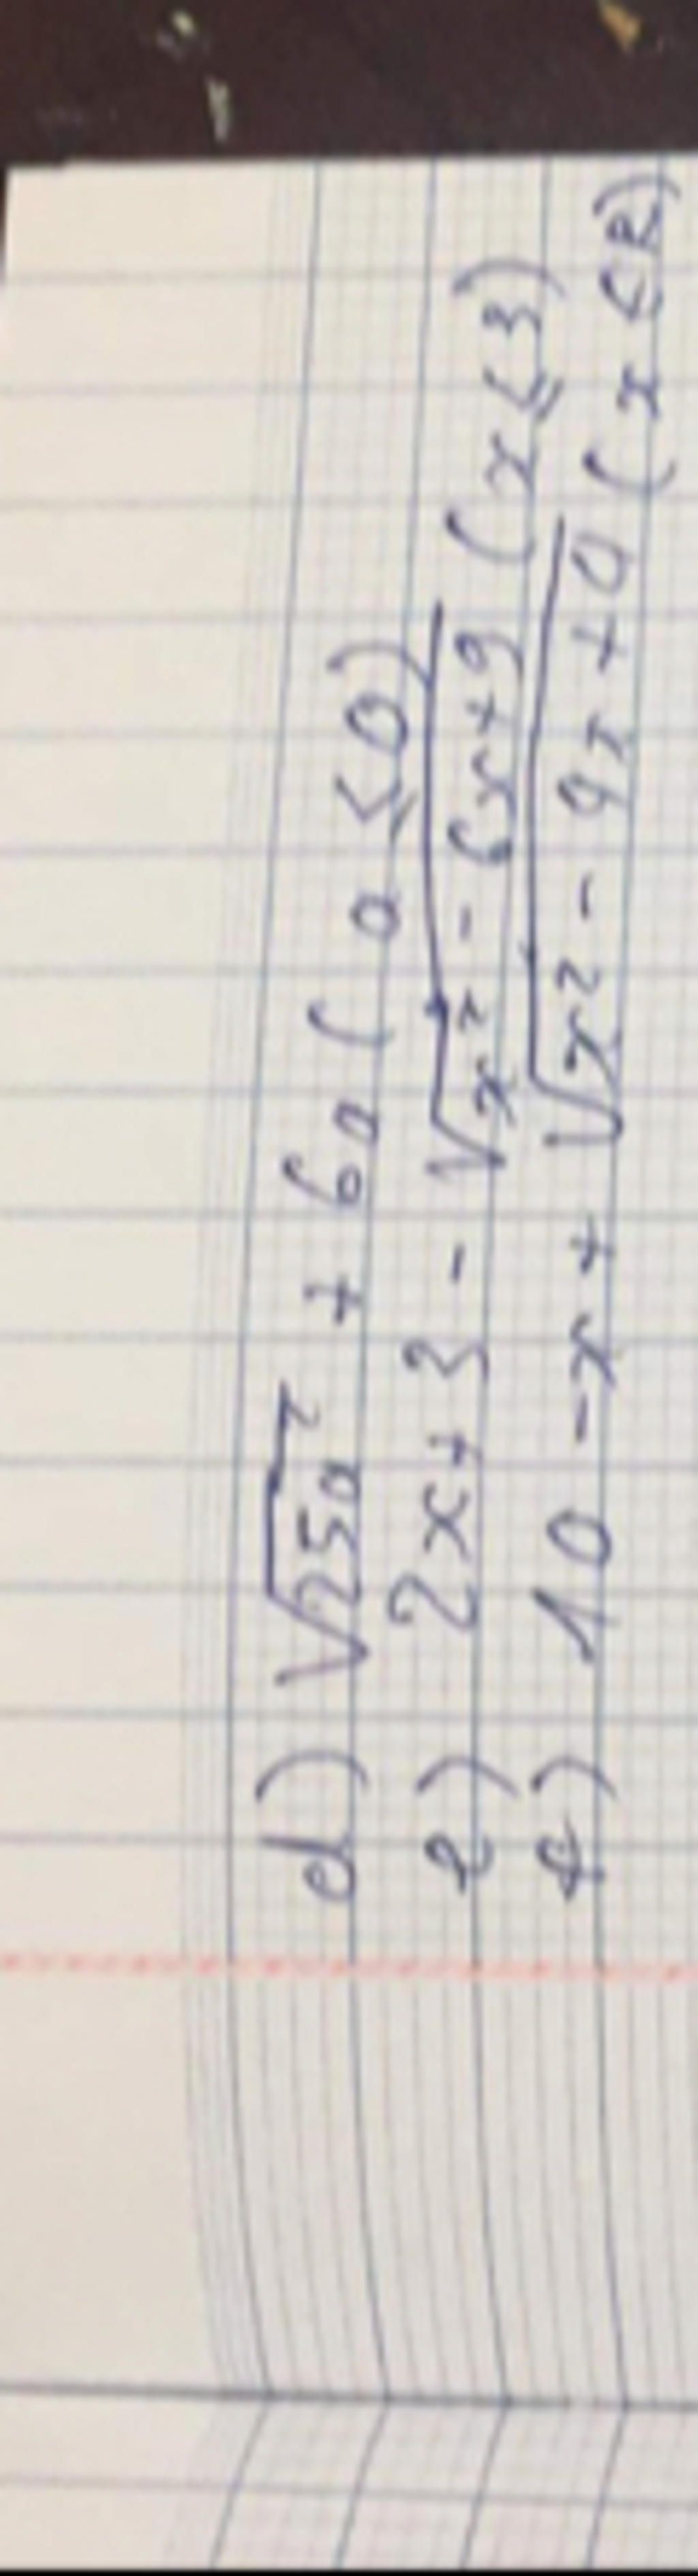 d) √25a² + 6a (a ≤ 0)
e) 2x + 3 - √x² - 6x + 9 (x ≤ 3)
f) 10 - x + √x² - 4x + 4 (x < 2)